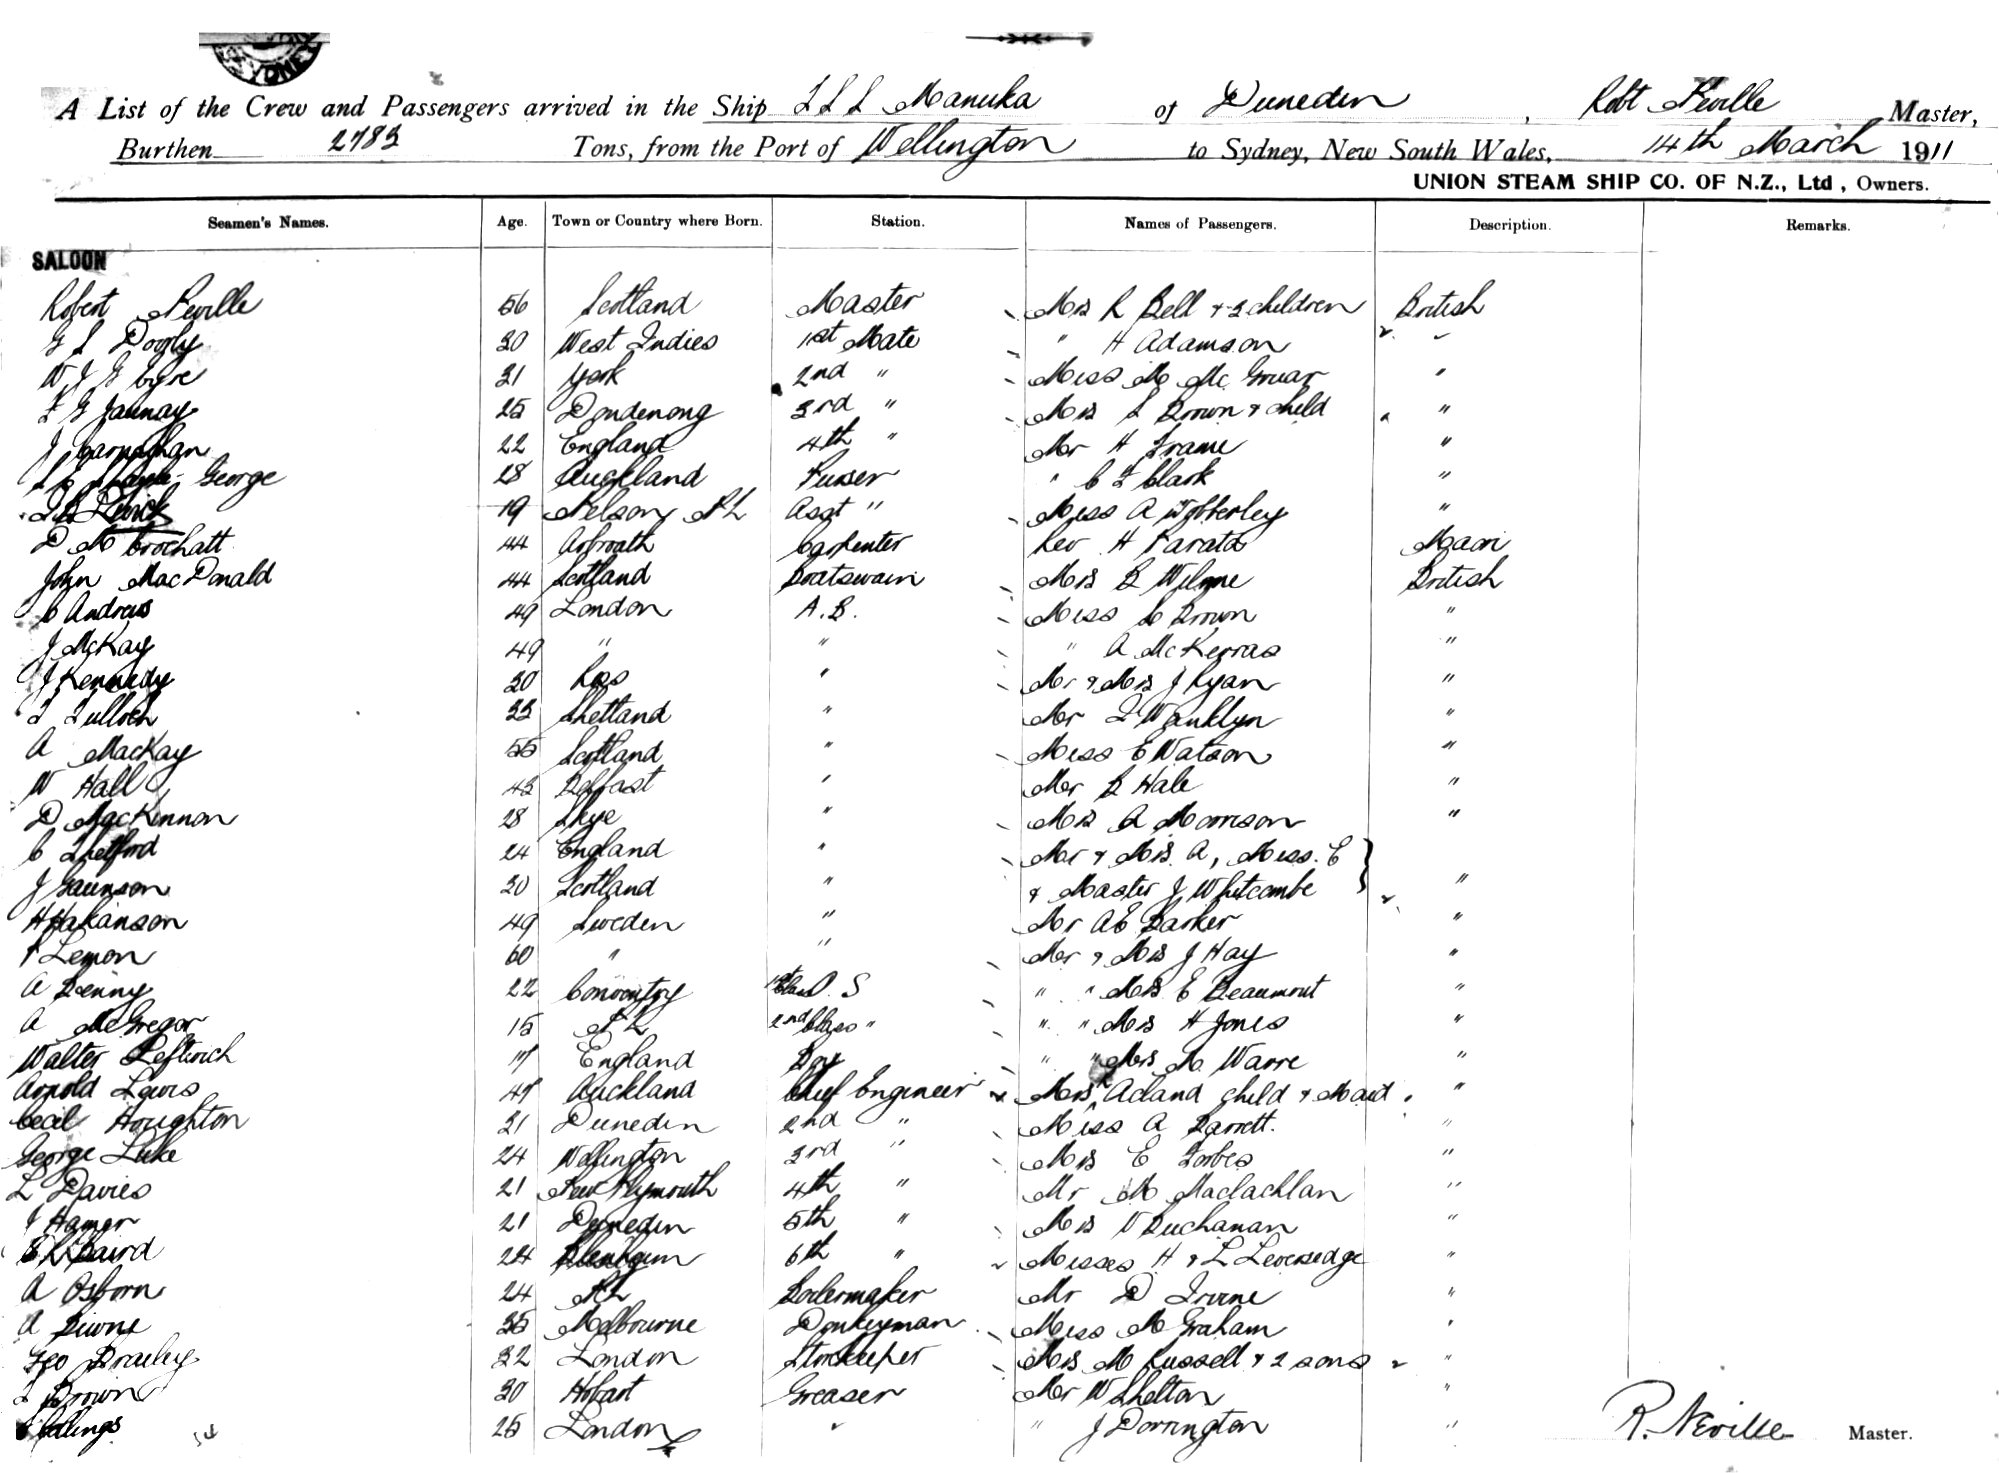 SYDNEY
A List of the Crew and Passengers arrived in the Ship S S S Manuka of Dunedin, Robt Neville Master,
Burthen 2783 Tons, from the Port of Wellington to Sydney, New South Wales, 14th March 1911
UNION STEAM SHIP CO. OF N.Z., Ltd, Owners.
Seamen's Names. Age. Town or Country where Born. Station. Names of Passengers. Description. Remarks.
SALOON
Robert Neville 56 Scotland Master Mrs R Bell & 2 children British
G S Dooly 30 West Indies 1st Mate " H Adamson "
W J G Eyre 31 York 2nd " Miss M McGruar "
F G Jaunay 25 Dandenong 3rd " Mrs S Brown & child "
J Carnahan 22 England 4th " Mr H Frame "
George 28 Auckland Purser " C F Clark "
19 Nelson NZ Asst " Miss A Wybberley "
D M Crochatt 44 Arbroath Carpenter Rev H Parata Maori
John MacDonald 44 Scotland Boatswain Mrs B British
C Andrews 49 London A.B. Miss C Brown "
J McKay 49 " " " A McKerras "
J Kennedy 30 Ross " Mr & Mrs J Ryan "
T Tulloch 33 Shetland " Mr F Wanklyn "
A MacKay 55 Scotland " Miss E Watson "
W Hall 43 Belfast " Mr B Hale "
D MacKinnon 28 Skye " Mrs A Morrison "
C Shetford 24 England " Mr & Mrs A, Miss E }
J Gaunson 30 Scotland " & Master J Whitcombe } "
H Hakanson 49 Sweden " Mr A E Barker "
P Lemon 60 " " Mr & Mrs J Hay "
A Benny 22 Coventry 1st Class O.S " " Mrs E Beaumont "
A McGregor 15 NZ 2nd Class " " " Mrs H Jones "
Walter Leftwich 17 England Boy " " Mrs M Warre "
Arnold Lewis 47 Auckland Chief Engineer Mrs Acland child & Maid "
Cecil Houghton 31 Dunedin 2nd " Miss A Barrett. "
George Luke 24 Wellington 3rd " Mrs E Forbes "
L Davies 21 New Plymouth 4th " Mr M Maclachlan "
J Hamer 21 Dunedin 5th " Mrs V Buchanan "
Baird 24 Blenheim 6th " Misses H & L Leversedge "
A Osborn 24 NZ Boilermaker Mr D Irvine "
A 35 Melbourne Donkeyman Miss M Graham "
Geo Brailey 32 London Storekeeper Mrs M Russell & 2 sons "
Brown 30 Hobart Greaser Mr W Shelton "
25 London " " J Dorrington "
34
R. Neville Master.